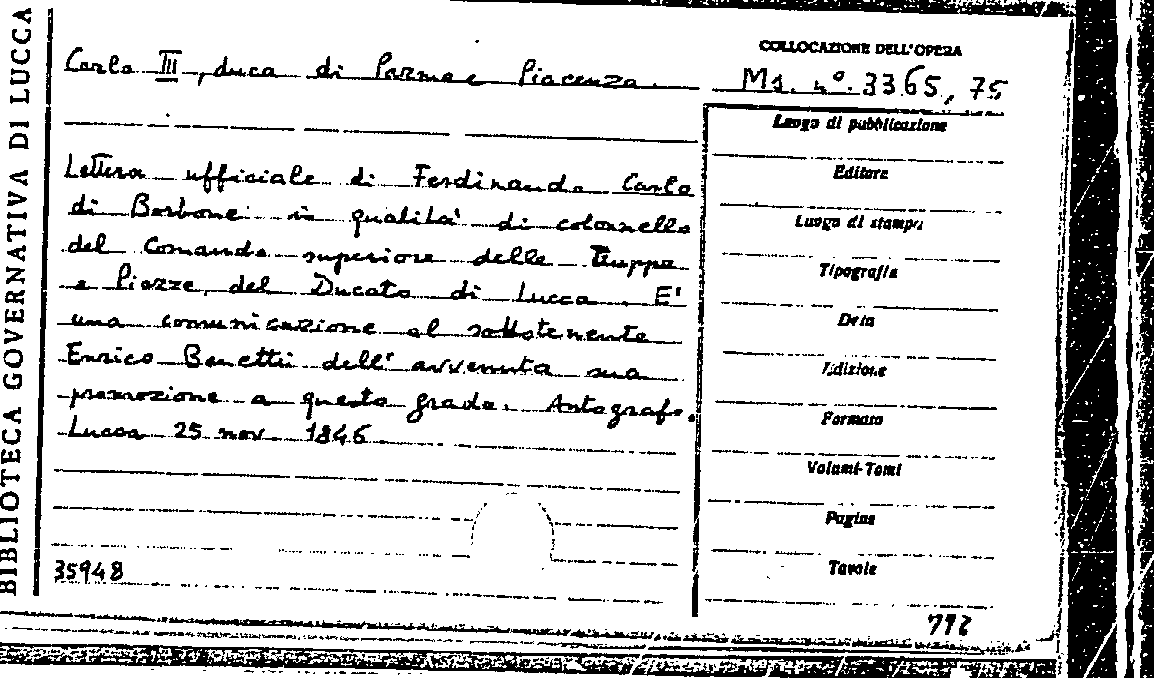 BIBLIOTECA GOVERNATIVA DI LUCCA
Carlo III, duca di Parma e Piacenza.
COLLOCAZIONE DELL'OPERA
Ms. nº. 3365, 75
Lettera ufficiale di Ferdinando Carlo
di Borbone in qualità di colonnello
del Comando superiore delle Truppe
e Piazze del Ducato di Lucca. E'
una comunicazione al sottotenente
Enrico Bonetti dell'avvenuta sua
promozione a questo grado. Autografo.
Lucca 25 nov. 1846
35948
Luogo di pubblicazione
Editore
Luogo di stampa
Tipografia
Data
Edizione
Formato
Volumi-Tomi
Pagine
Tavole
792